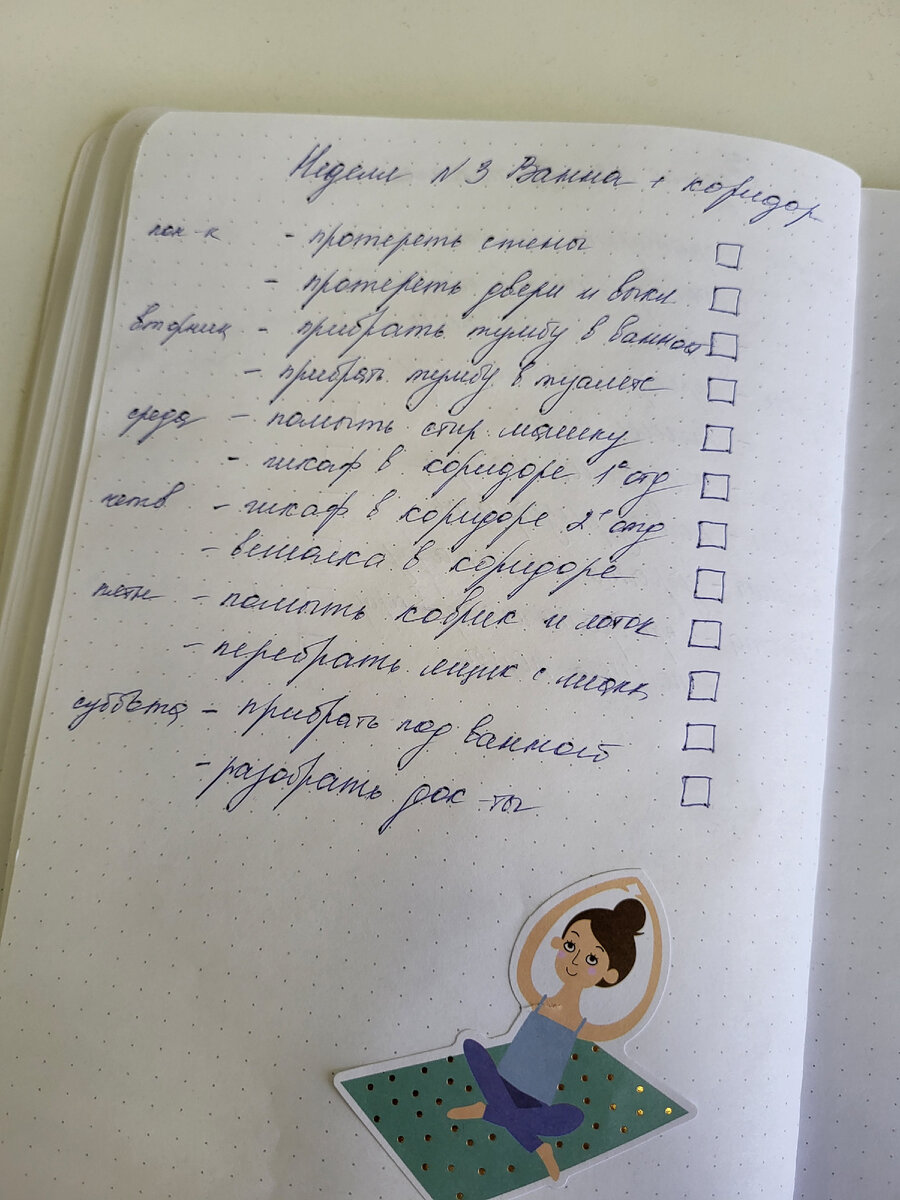 Неделя N 3 Ванна + коридор
пон-к - протереть стены
- протереть двери и выкл
вторник - прибрать тумбу в ванной
- прибрать тумбу в туалете
среда - помыть стир. машинку
- шкаф в коридоре 1е отд
четв. - шкаф в коридоре 2е отд
- вешалка в коридоре
пятн - помыть коврик и лоток
- перебрать ящик с
суббота - прибрать под ванной
- разобрать док-ты